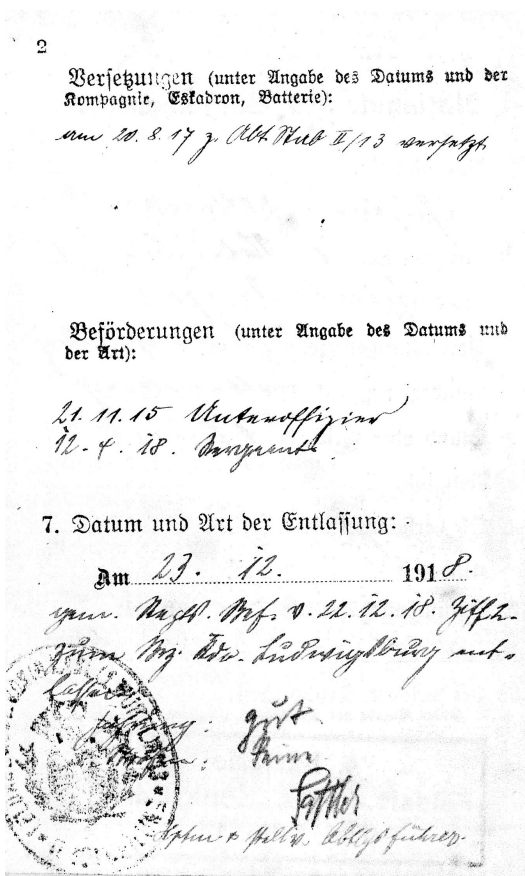 2
Versetzungen (unter Angabe des Datums und der
Kompagnie, Eskadron, Batterie):
am 20. 8. 17 z. Abt. Stab II/13 versetzt
Beförderungen (unter Angabe des Datums und
der Art):
21. 11. 15 Unteroffizier
12. 4. 18. Sergeant
7. Datum und Art der Entlassung:
Am 23. 12. 1918.
gem. v. 22. 12. 18. Ziff. 2.
zum Bz. Kdo. Ludwigsburg ent-
lassen
Führung: gut
Strafen: keine
Hptm & stellv. Abtlgsführer.